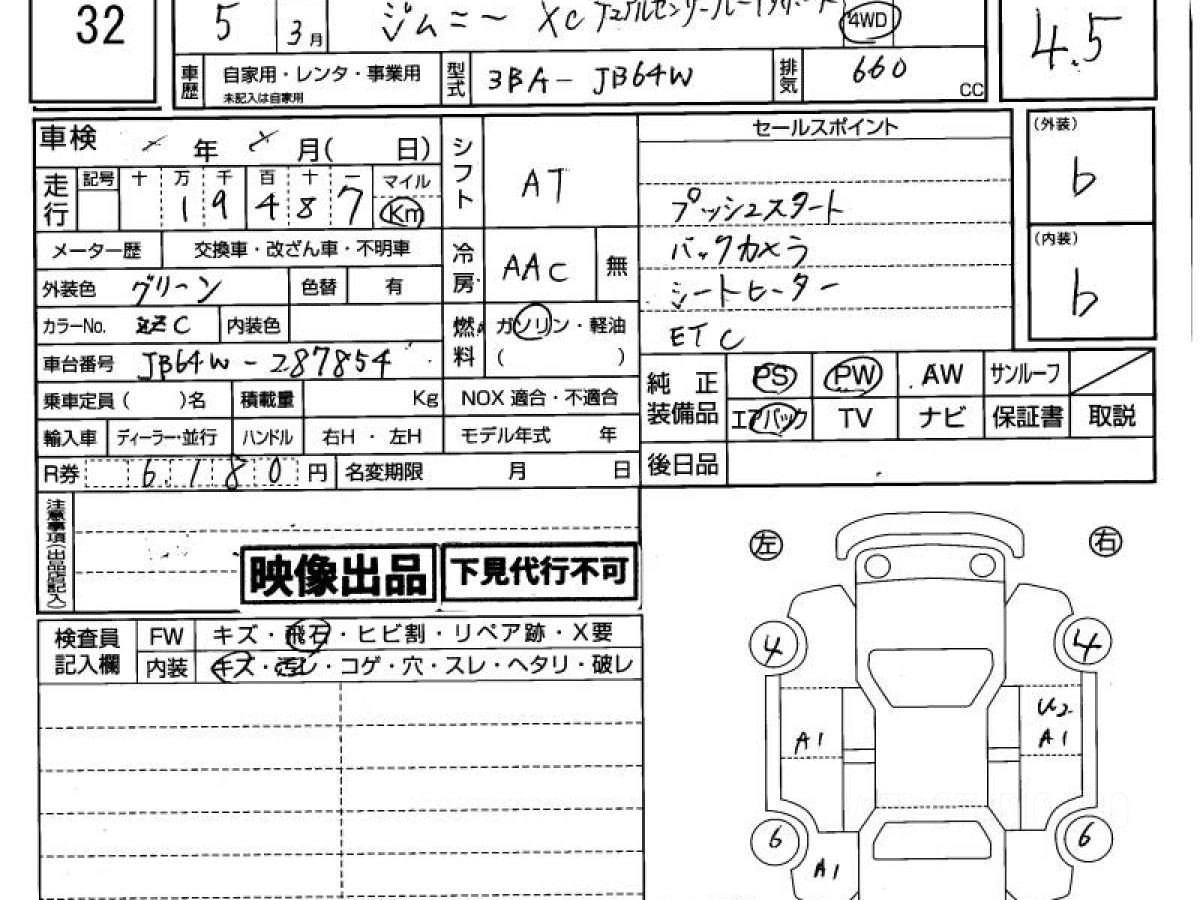 32
5 3月 ジムニー XC デュアルセンサーブレーキサポート 4WD
4.5
車歴 自家用・レンタ・事業用 未記入は自家用 型式 3BA-JB64W 排気 660 CC
車検 年 月( 日) シフト AT セールスポイント (外装) b
走行 記号 十万千百十一 マイル
19487 Km
プッシュスタート
メーター歴 交換車・改ざん車・不明車 冷房 AAC 無 バックカメラ (内装) b
外装色 グリーン 色替 有 シートヒーター
カラーNo. ZZC 内装色 燃料 ガソリン・軽油 ( ) ETC
車台番号 JB64W-287854
純正装備品 PS PW AW サンルーフ
乗車定員( )名 積載量 Kg NOX 適合・不適合 エアバック TV ナビ 保証書 取説
輸入車 ディーラー・並行 ハンドル 右H・左H モデル年式 年
R券 6,180 円 名変期限 月 日 後日品
注意事項(出品店記入)
映像出品 下見代行不可
左 右
検査員記入欄 FW キズ・飛石・ヒビ割・リペア跡・X要
内装 キズ・汚レ・コゲ・穴・スレ・ヘタリ・破レ
4 4
U2
A1 A1
6 6
A1